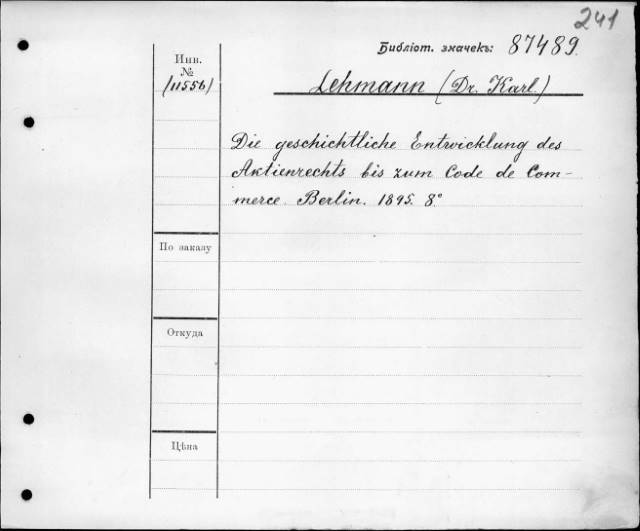 241
Библіот. значекъ: 87489.
Инв.
№
(11556)
Lehmann (Dr. Karl.)
Die geschichtliche Entwicklung des
Aktienrechts bis zum Code de Com-
merce. Berlin. 1895. 8°
По заказу
Откуда
Цѣна